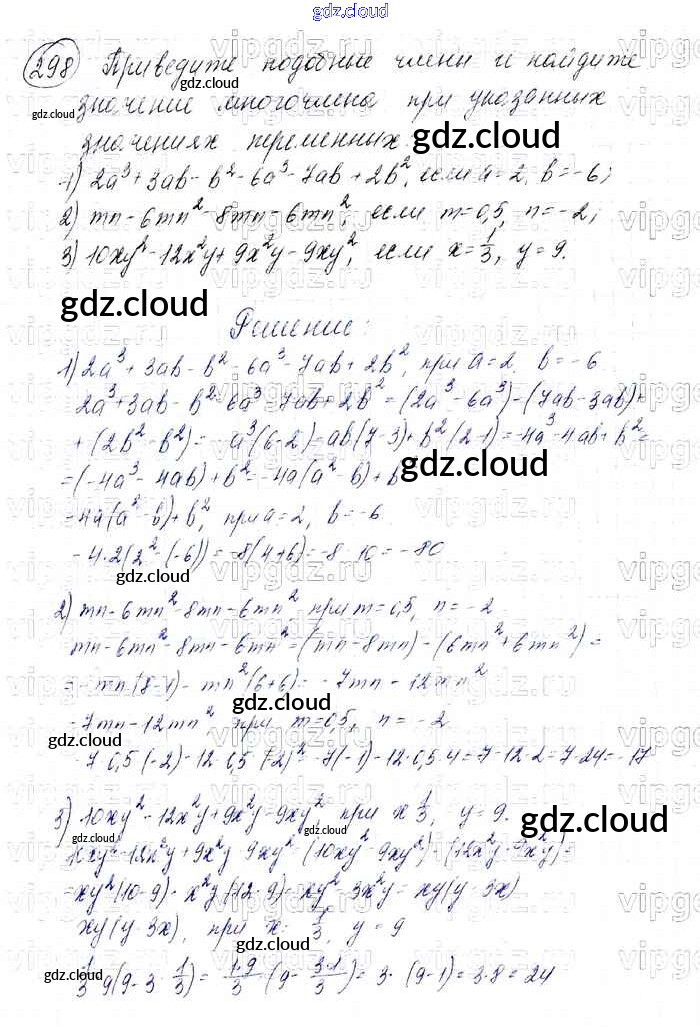 gdz.cloud
298 Приведите подобные члены и найдите
значение многочлена при указанных
значениях переменных.
1) 2a³+3ab-b²-6a³-7ab+2b², если a=2, b=-6;
2) mn-6mn²-8mn-6mn², если m=0,5, n=-2;
3) 10xy²-12x²y+9x²y-9xy², если x=1/3, y=9.
Решение:
1) 2a³+3ab-b²-6a³-7ab+2b², при a=2, b=-6
2a³+3ab-b²-6a³-7ab+2b²=(2a³-6a³)-(7ab-3ab)+
+(2b²-b²)=-a³(6-2)=ab(7-3)+b²(2-1)=-4a³-4ab+b²=
=(-4a³-4ab)+b²=-4a(a²-b)+b
=4a(a²-b)+b², при a=2, b=-6
-4·2(2²-(-6))=-8(4+6)=-8·10=-80
2) mn-6mn²-8mn-6mn², при m=0,5, n=-2
mn-6mn²-8mn-6mn²=(mn-8mn)-(6mn²+6mn²)=
=-mn(8-1)-mn²(6+6)=-7mn-12mn²
-7mn-12mn², при m=0,5, n=-2
-7·0,5·(-2)-12·0,5·(-2)²=-7(-1)-12·0,5·4=7-12·2=7-24=-17
3) 10xy²-12x²y+9x²y-9xy² при x 1/3, y=9.
10xy²-12x²y+9x²y-9xy²=(10xy²-9xy²)-(12x²y-9x²y)=
=xy²(10-9)-x²y(12-9)=xy²-3x²y=xy(y-3x)
xy(y-3x), при x=1/3, y=9
1/3·9(9-3·1/3)=1·9/3·(9-3·1/3)=3·(9-1)=3·8=24